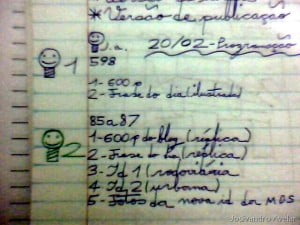 *Versão de publicação
J.a. 20/02-Programação
1 598
1-600 p
2-Frase do dia (ilustrada)
85 a 87
2 1-600 p do blog (réplica)
2-Frase do dia (réplica)
3-Id 1 (rodoviária)
4-Id 2 (urbana)
5-Fotos da nova id da M.D.S
Josivandro Avelar